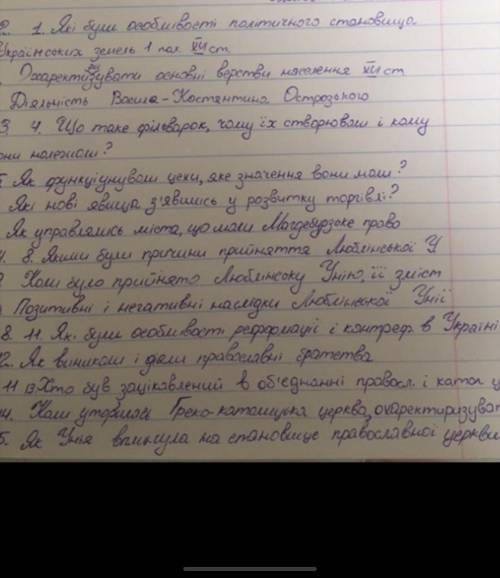 2. 1. Які були особливості політичного становища
Українських земель 1 пол. XVI ст.
Охарактеризувати основні верстви населення XVI ст
Діяльність Василя-Костянтина Острозького
3 4. Що таке фільварок, чому їх створювали і кому
они належали?
Як функціонували цехи, яке значення вони мали?
Які нові явища з'явились у розвитку торгівлі?
Як управлялись міста, що мали Магдебурзьке право
8. Якими були причини прийняття Люблінської У
Коли було прийнято Люблінську Унію, її зміст
Позитивні і негативні наслідки Люблінської Унії
8. 11. Які були особливості реформації і контреф. в Україні
12. Як виникли і діяли православні братства
11 13 Хто був зацікавлений в об'єднанні правосл. і катол ц
14. Коли утворилась Греко-католицька церква, охарактеризуват
5. Як Унія вплинула на становище православної церкви